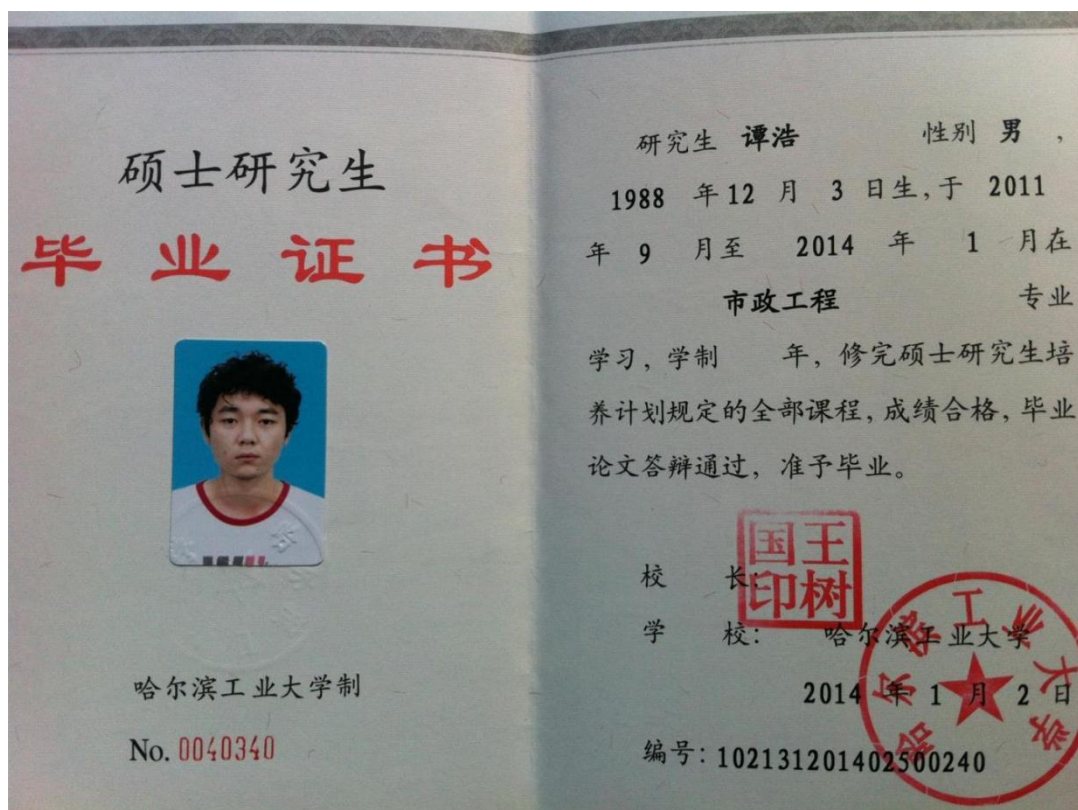 硕士研究生
毕业证书
哈尔滨工业大学制
No. 0040340
研究生 谭浩 性别 男 ，
1988 年 12 月 3 日生，于 2011
年 9 月至 2014 年 1 月在
市政工程 专业
学习，学制 年，修完硕士研究生培
养计划规定的全部课程，成绩合格，毕业
论文答辩通过，准予毕业。
校 长：
王树国印
学 校： 哈尔滨工业大学
哈尔滨工业大学
2014 年 1 月 2 日
编号：102131201402500240